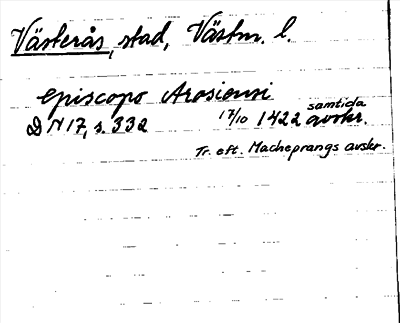 Västerås, stad, Västm. l.
episcopo Arosiensi
DN 17, s. 332 17/10 1422 samtida avskr.
Tr. eft. Mackeprangs avskr.